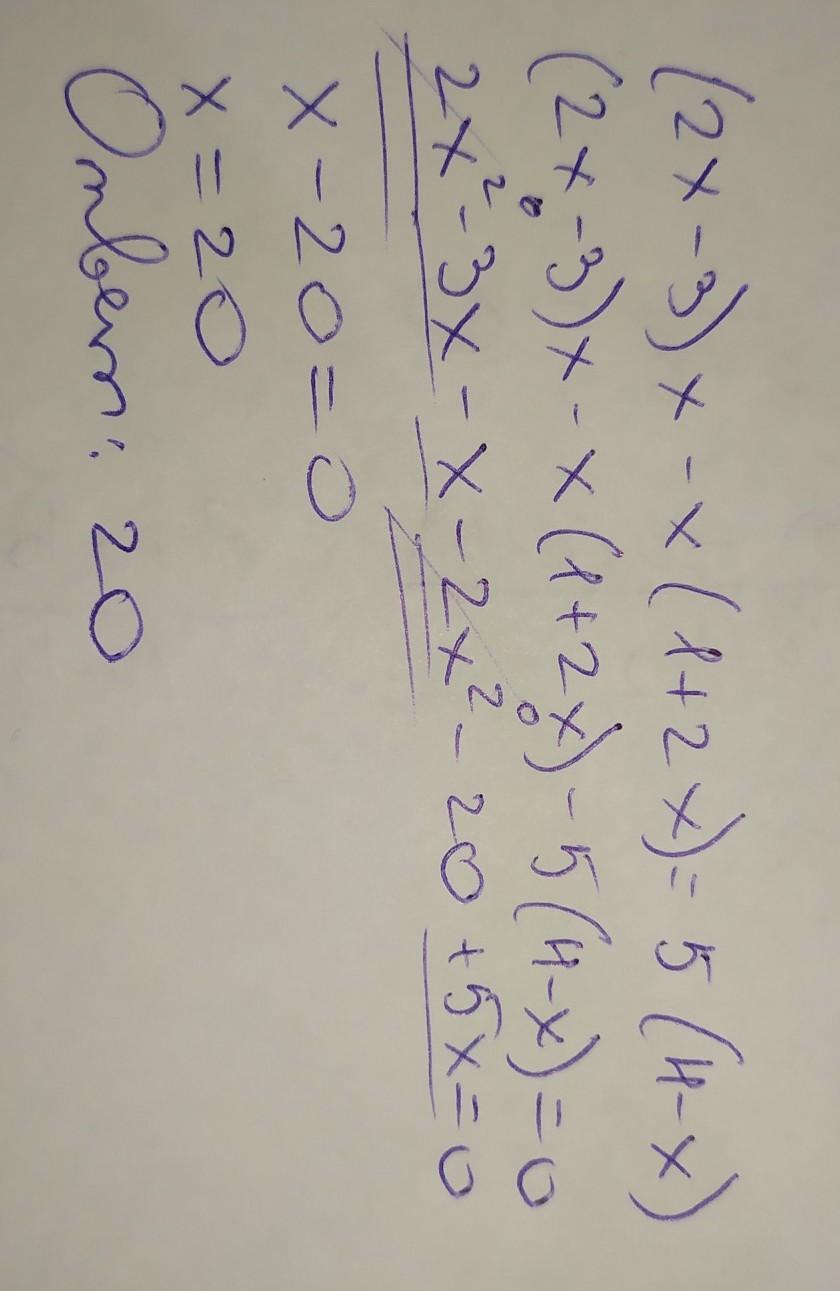 (2x-3)x-x(1+2x)=5(4-x)
(2x-3)x-x(1+2x)-5(4-x)=0
2x²-3x-x-2x²-20+5x=0
x-20=0
x=20
Ответ: 20